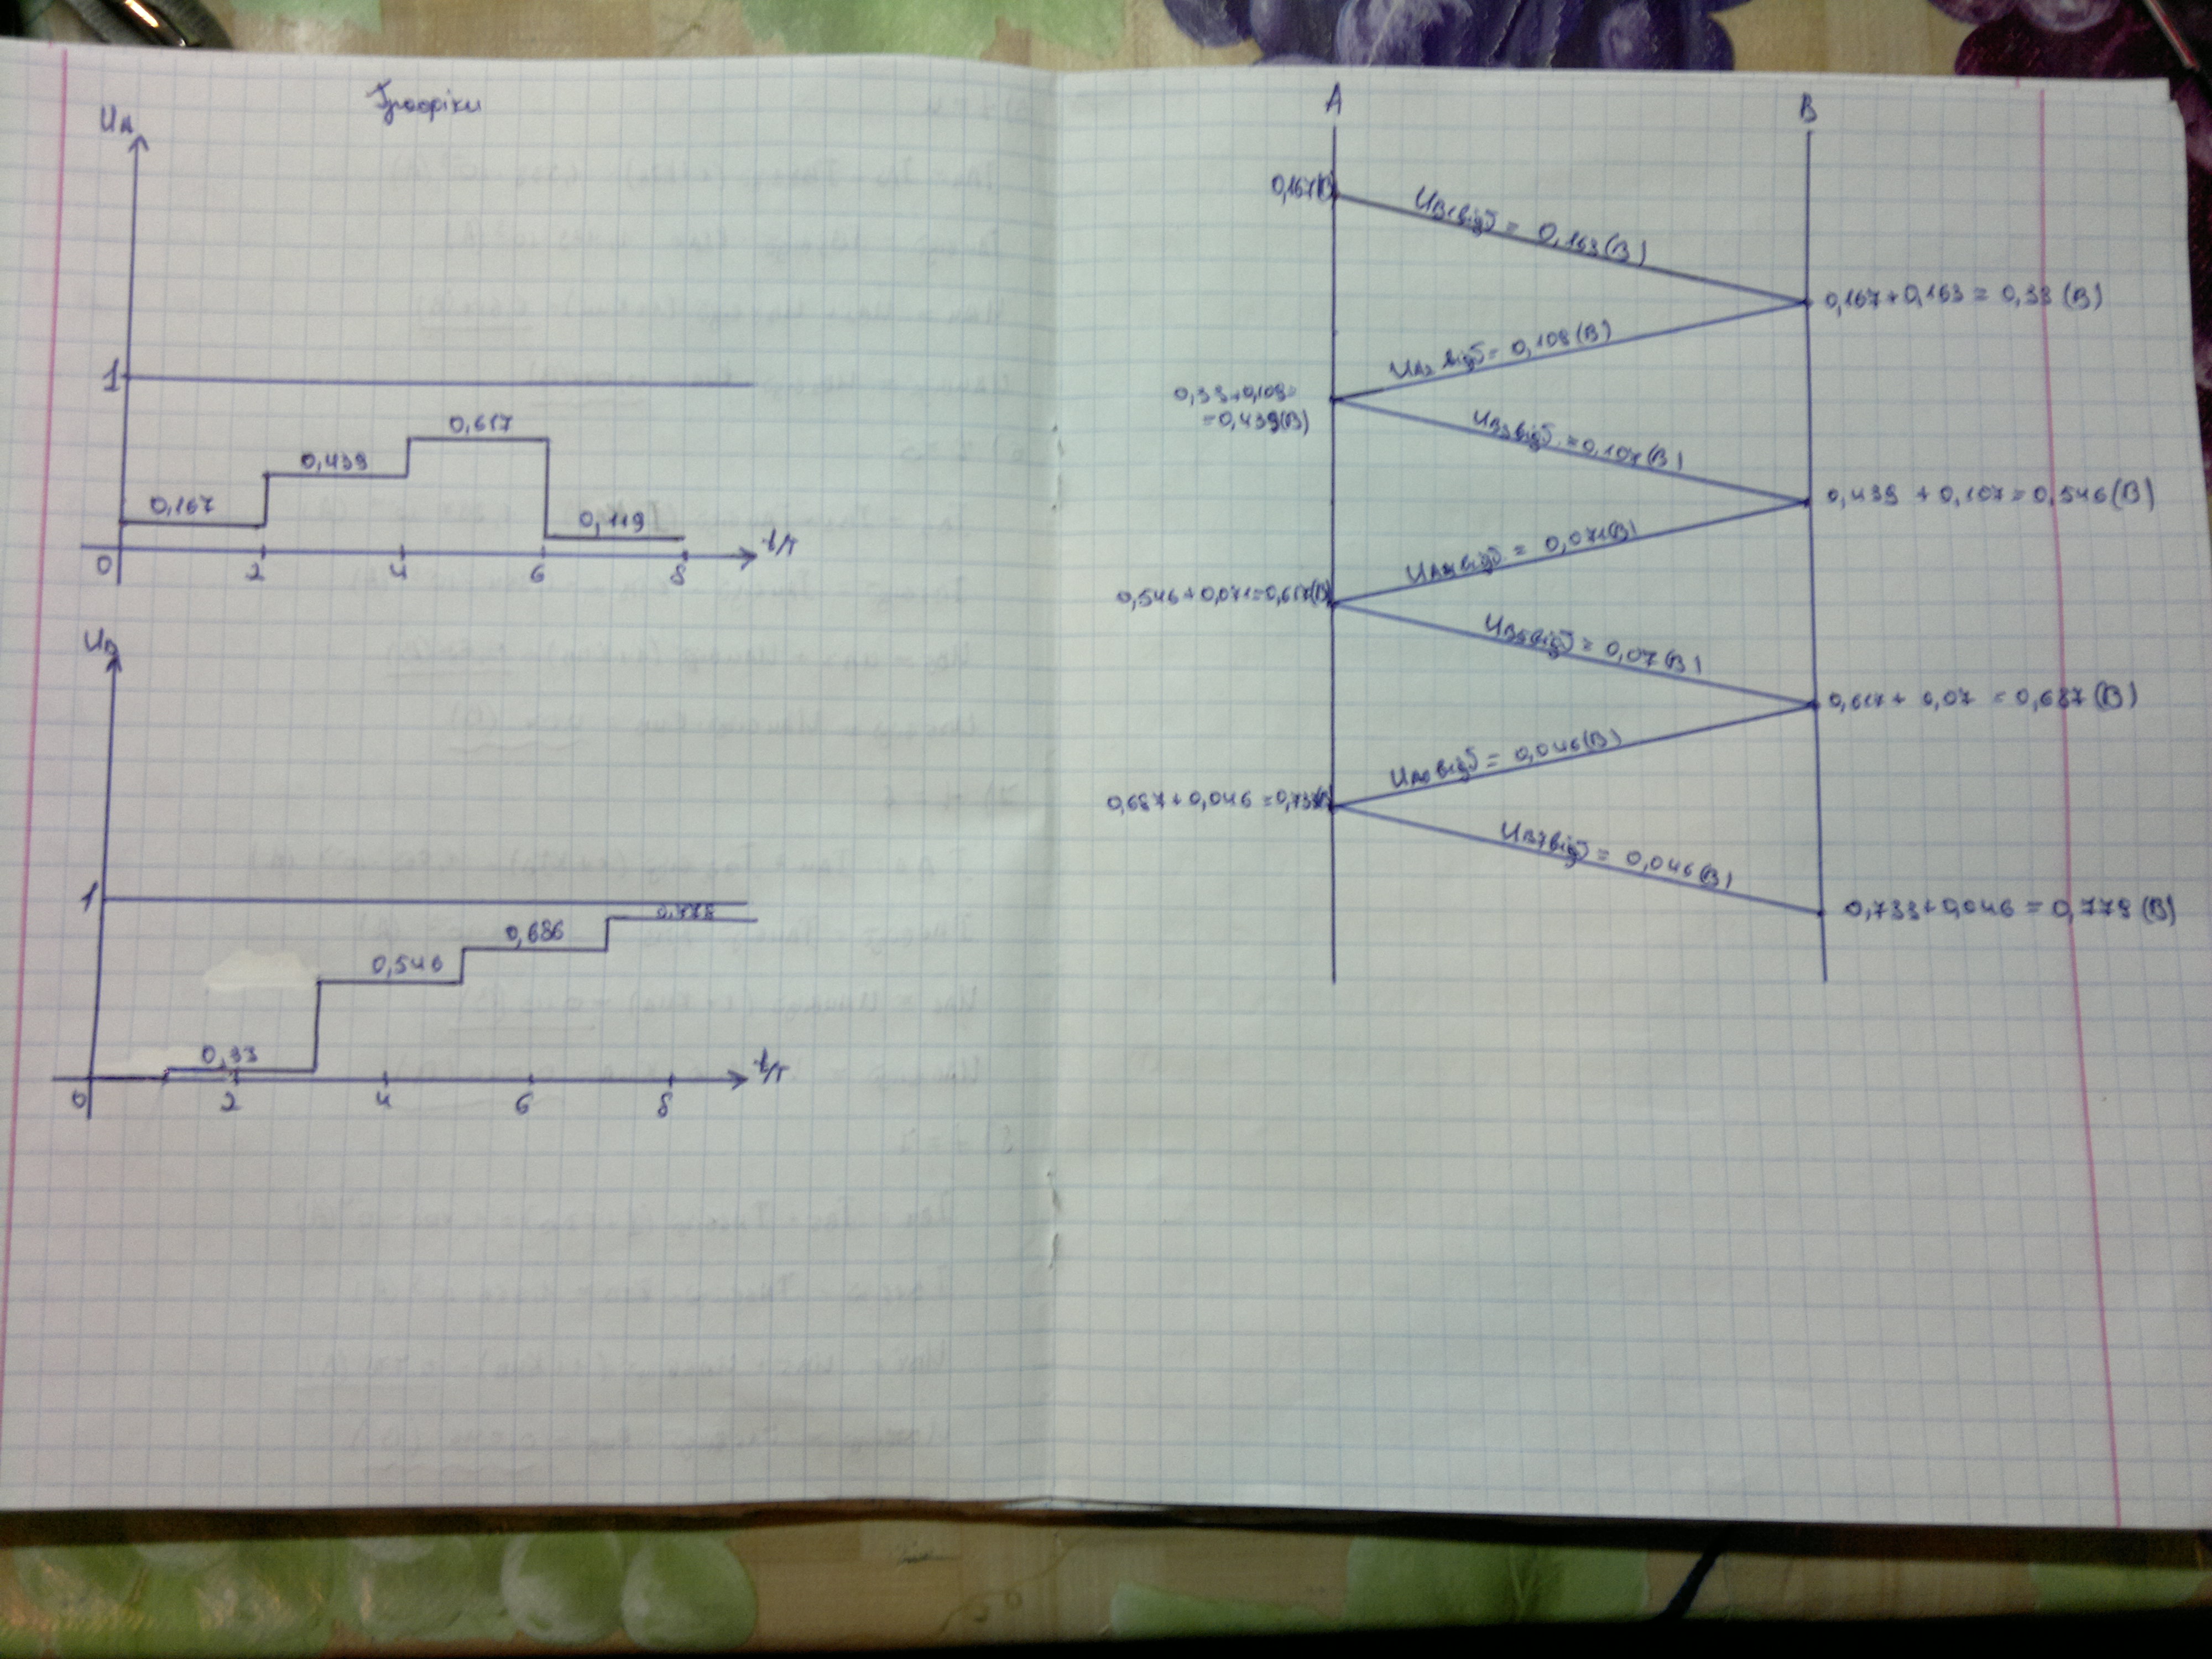 Графіки
UA
1
0,167
0,439
0,617
0,119
0
2
4
6
8
t/τ
UB
1
0,33
0,546
0,686
0
2
4
6
8
t/τ
A
B
0,167(В)
UB1відб = 0,163(В)
0,167+0,163 = 0,33 (В)
UA2 відб = 0,109(В)
0,33+0,109=
=0,439(В)
UB3відб = 0,107(В)
0,439 + 0,107=0,546(В)
UA4відб = 0,071(В)
0,546+0,071=0,617(В)
UB5відб = 0,07(В)
0,617+ 0,07 = 0,687(В)
UA6відб = 0,046(В)
0,687+0,046=0,733(В)
UB7відб = 0,046(В)
0,733+0,046=0,779(В)